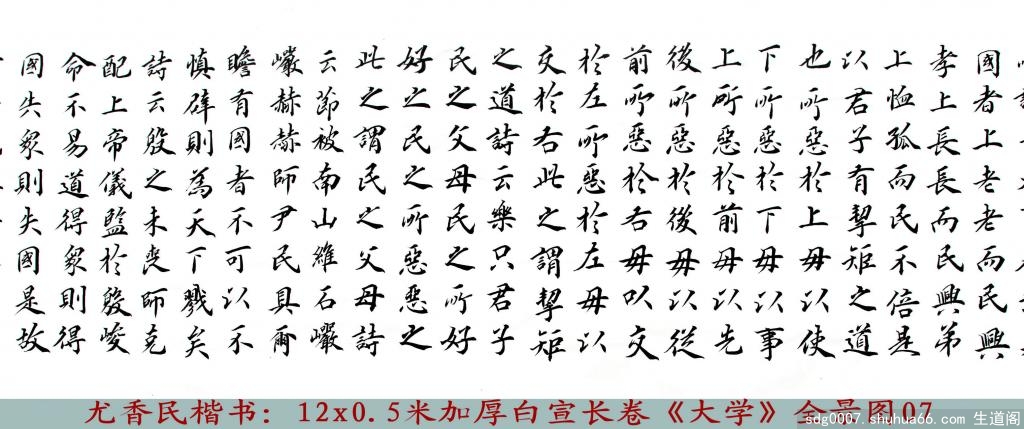 國者上老老而民興
孝上長長而民興弟
上恤孤而民不倍是
以君子有挈矩之道
也所惡於上毋以使
下所惡於下毋以事
上所惡於前毋以先
後所惡於後毋以從
前所惡於右毋以交
於左所惡於左毋以
交於右此之謂挈矩
之道詩云樂只君子
民之父母民之所好
好之民之所惡惡之
此之謂民之父母詩
云節被南山維石巖
巖赫赫師尹民具爾
瞻有國者不可以不
慎辟則為天下戮矣
詩云殷之未喪師克
配上帝儀監於殷峻
命不易道得眾則得
國失眾則失國是故
尤香民楷书：12x0.5米加厚白宣长卷《大学》全景图07
sdg0007.shuhua66.com 生道阁